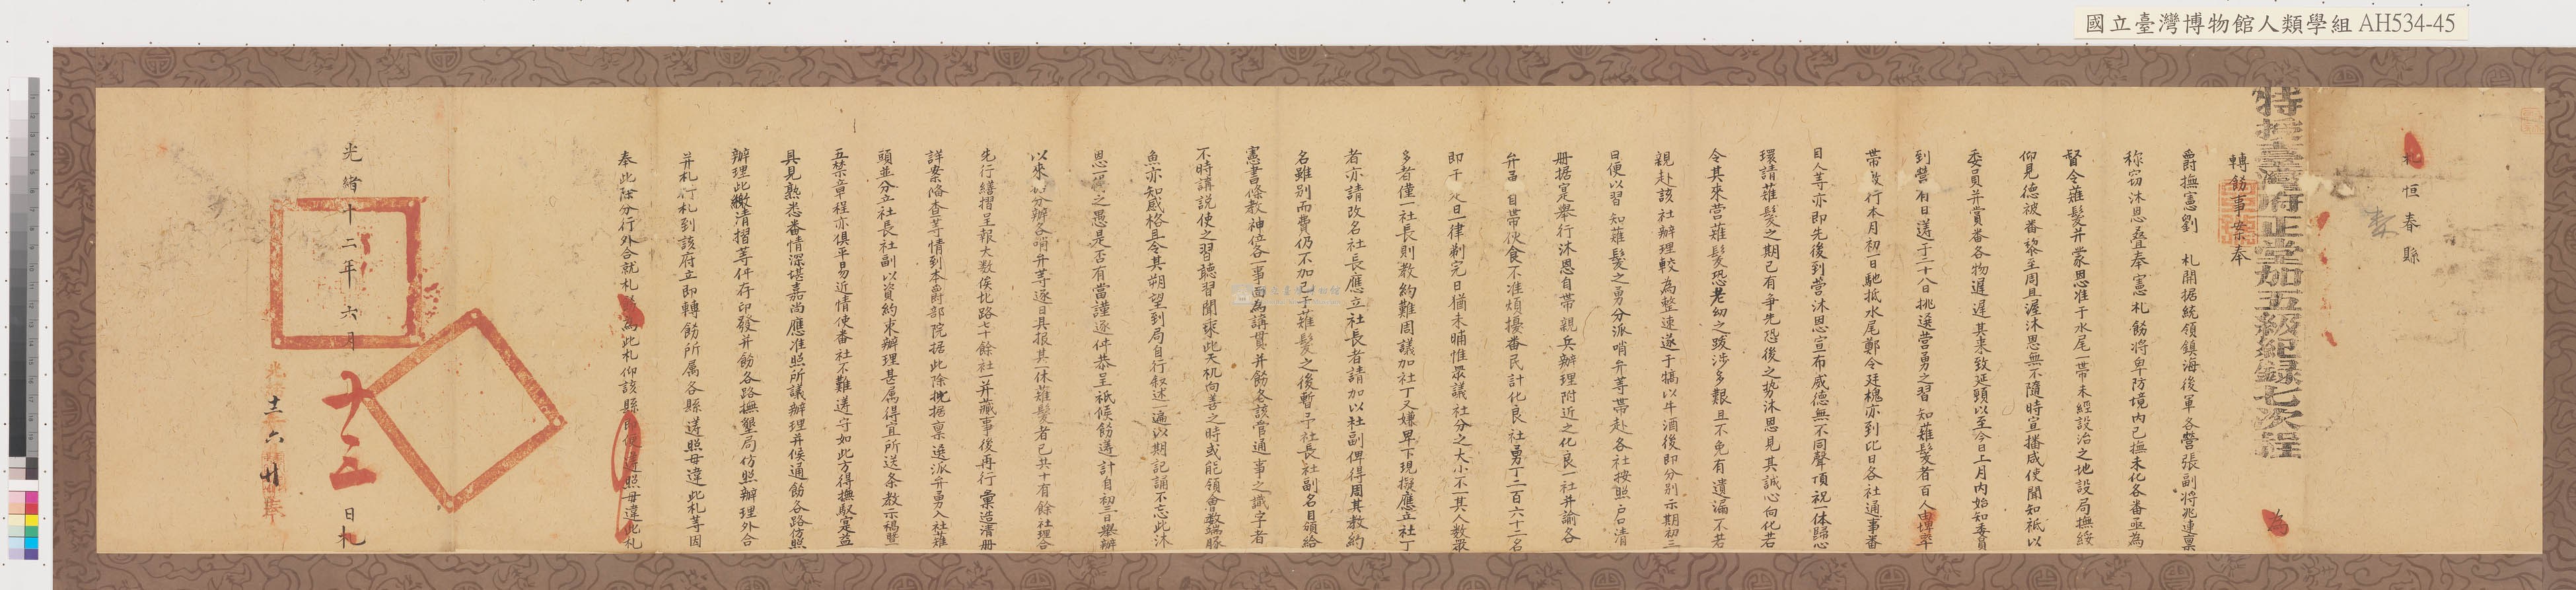 國立臺灣博物館人類學組 AH534-45
札 恒春縣
特授臺灣府正堂加五級紀錄七次程 為
轉飭事案奉
爵撫憲劉 札開据統領鎮海後軍各營張副將兆連稟
称窃沐恩叠奉憲札飭將卑防境內已撫未化各番亟為
督令薙髮并蒙恩准于水尾一帶未經設治之地設局撫綏
仰見德被番黎至周且渥沐恩無不隨時宣播咸使聞知祗以
委員并賞番各物遲遲其来致延頸以至今日上月內始知委員
到營有日遂于二十八日挑送營勇之習知薙髮者百人由埤率
帶啟行本月初一日馳抵水尾鄭令廷槐亦到比日各社通事番
目人等亦即先後到营沐恩宣布威德無不同聲頂祝一体歸心
環請薙髮之期已有爭先恐後之势沐恩見其誠心向化若
令其來营薙髮恐老幼之跋涉多艱且不免有遺漏不若
親赴該社辦理較為整速遂于犒以牛酒後即分别示期初三
日便以習知薙髮之勇分派哨弁等帶赴各社按照户口清
册据定舉行沐恩自帶親兵辦理附近之化良一社并諭各
弁勇自帶伙食不准煩擾番民計化良社男丁二百六十二名
即于 日一律剃完日猶未晡惟眾議社分之大小不一其人数眾
多者僅一社長則教約難周議加社丁又嫌卑下現擬應立社丁
者亦請改名社長應立社長者請加以社副俾得周其教約
名雖别而費仍不加已于薙髮之後暫予社長社副名目頒給
憲書條教神位各一事面為講貫并飭各該管通事之識字者
不時講説使之習聽習聞乘此天机向善之時或能領會教端豚
魚亦知感格且令其朔望到局自行叙述一遍以期記誦不忘此沐
恩一得之愚是否有當謹逐件恭呈祇候飭遵計自初三日舉辦
以來 分辦各哨弁等逐日具报其一体薙髮者已共十有餘社理合
先行繕摺呈報大数俟北路七十餘社一并蕆事後再行彙造清册
詳案俻查等情到本爵部院据此除批据稟選派弁勇入社薙
頭並分立社長社副以資約束辦理甚属得宜所送条教示禢暨
五禁章程亦俱平易近情使番社不難遵守如此方得撫馭寔益
具見熟悉番情深堪嘉尚應准照所議辦理并候通飭各路仿照
辦理此繳清摺等件存印發并飭各路撫墾局仿照辦理外合
并札行札到該府立即轉飭所属各縣遵照毋違此札等因
奉此除分行外合就札 為此札仰該縣即便遵照毋違此札
光緒十二年六月 十三 日札